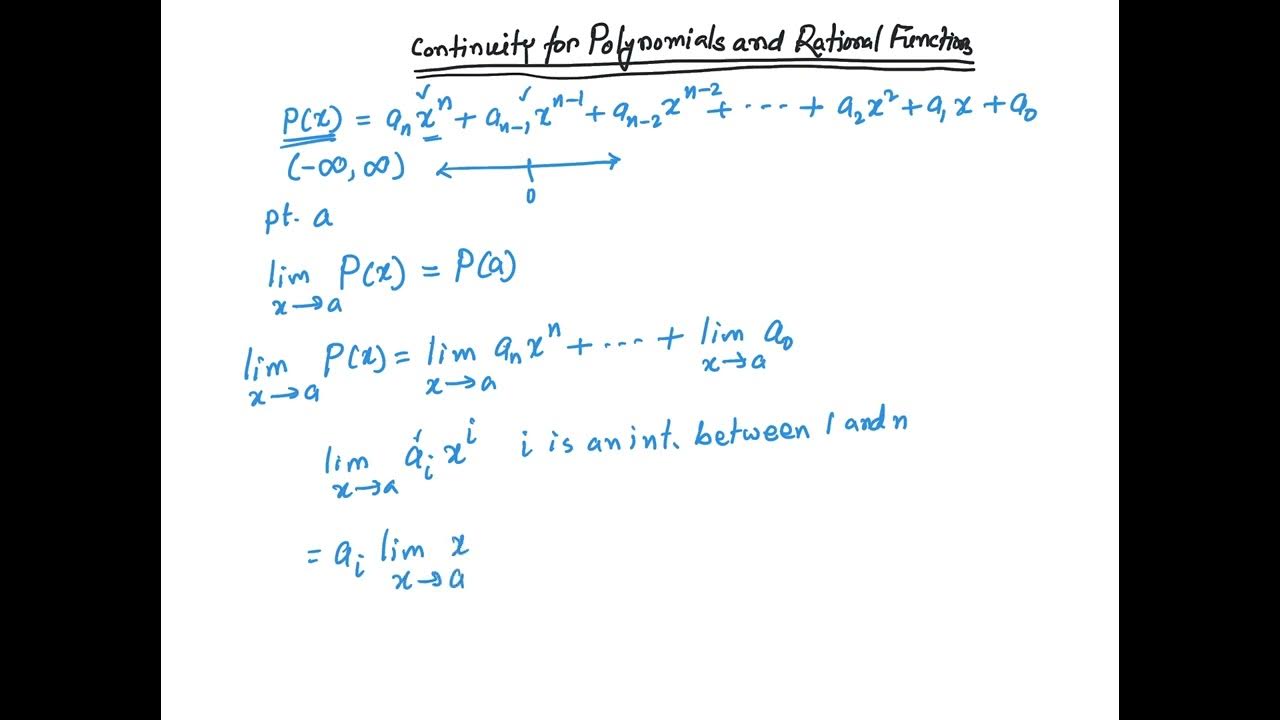 Continuity for Polynomials and Rational Functions
P(x) = aₙxⁿ + aₙ₋₁xⁿ⁻¹ + aₙ₋₂xⁿ⁻² + ... + a₂x² + a₁x + a₀
(-∞, ∞)
0
pt. a
lim P(x) = P(a)
x→a
lim P(x) = lim aₙxⁿ + ... + lim a₀
x→a x→a x→a
lim aᵢxⁱ i is an int. between 1 and n
x→a
= aᵢ lim x
x→a